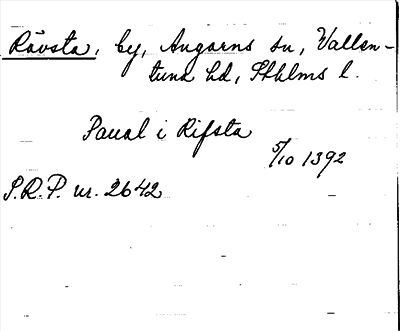 Rävsta, by, Angarns sn, Vallen-
tuna hd, Sthlms l.
Paual i Rifsta
5/10 1392
S.R.P. nr. 2642